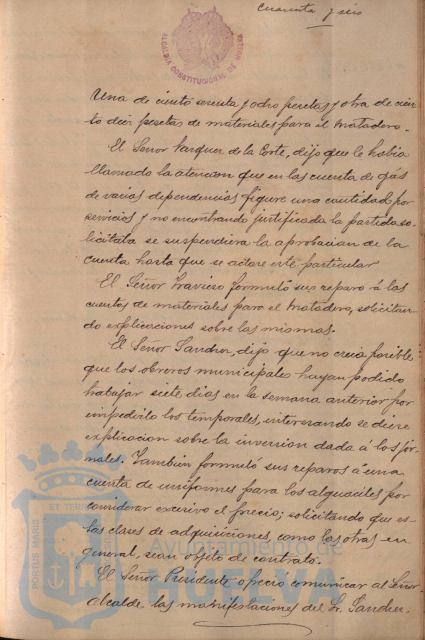 Cuarenta y seis
ALCALDIA CONSTITUCIONAL DE HUELVA
Una de ciento setenta y ocho pesetas y otra de cien-
to diez pesetas de materiales para el Matadero.
El Señor Vazquez de la Corte, dijo que le habia
llamado la atencion que en las cuenta de gas
de varias dependencias figure una cantidad por
servicios y no encontrando justificada la partida so-
licitaba se suspendiera la aprobacion de la
cuenta hasta que se aclare este particular
El Señor Travieso formuló sus reparo á las
cuentas de materiales para el Matadero, solicitan-
do esplicaciones sobre las mismas.
El Señor Sanchez, dijo que no creia posible
que los obreros municipales hayan podido
trabajar siete dias en la semana anterior por
impedirlo los temporales, interesando se diera
esplicacion sobre la inversion dada á los jor-
nales. Tambien formuló sus reparos á una
cuenta de uniformes para los alguaciles por
considerar excesivo el precio; solicitando que es-
tas clases de adquisiciones, como las otras en
general, sean objeto de contrato.
El Señor Presidente ofrecio comunicar al Señor
Alcalde, las manifestaciones del Sr. Sanchez.
PORTUS MARIS ET TERRAE
Ayuntamiento de
HUELVA